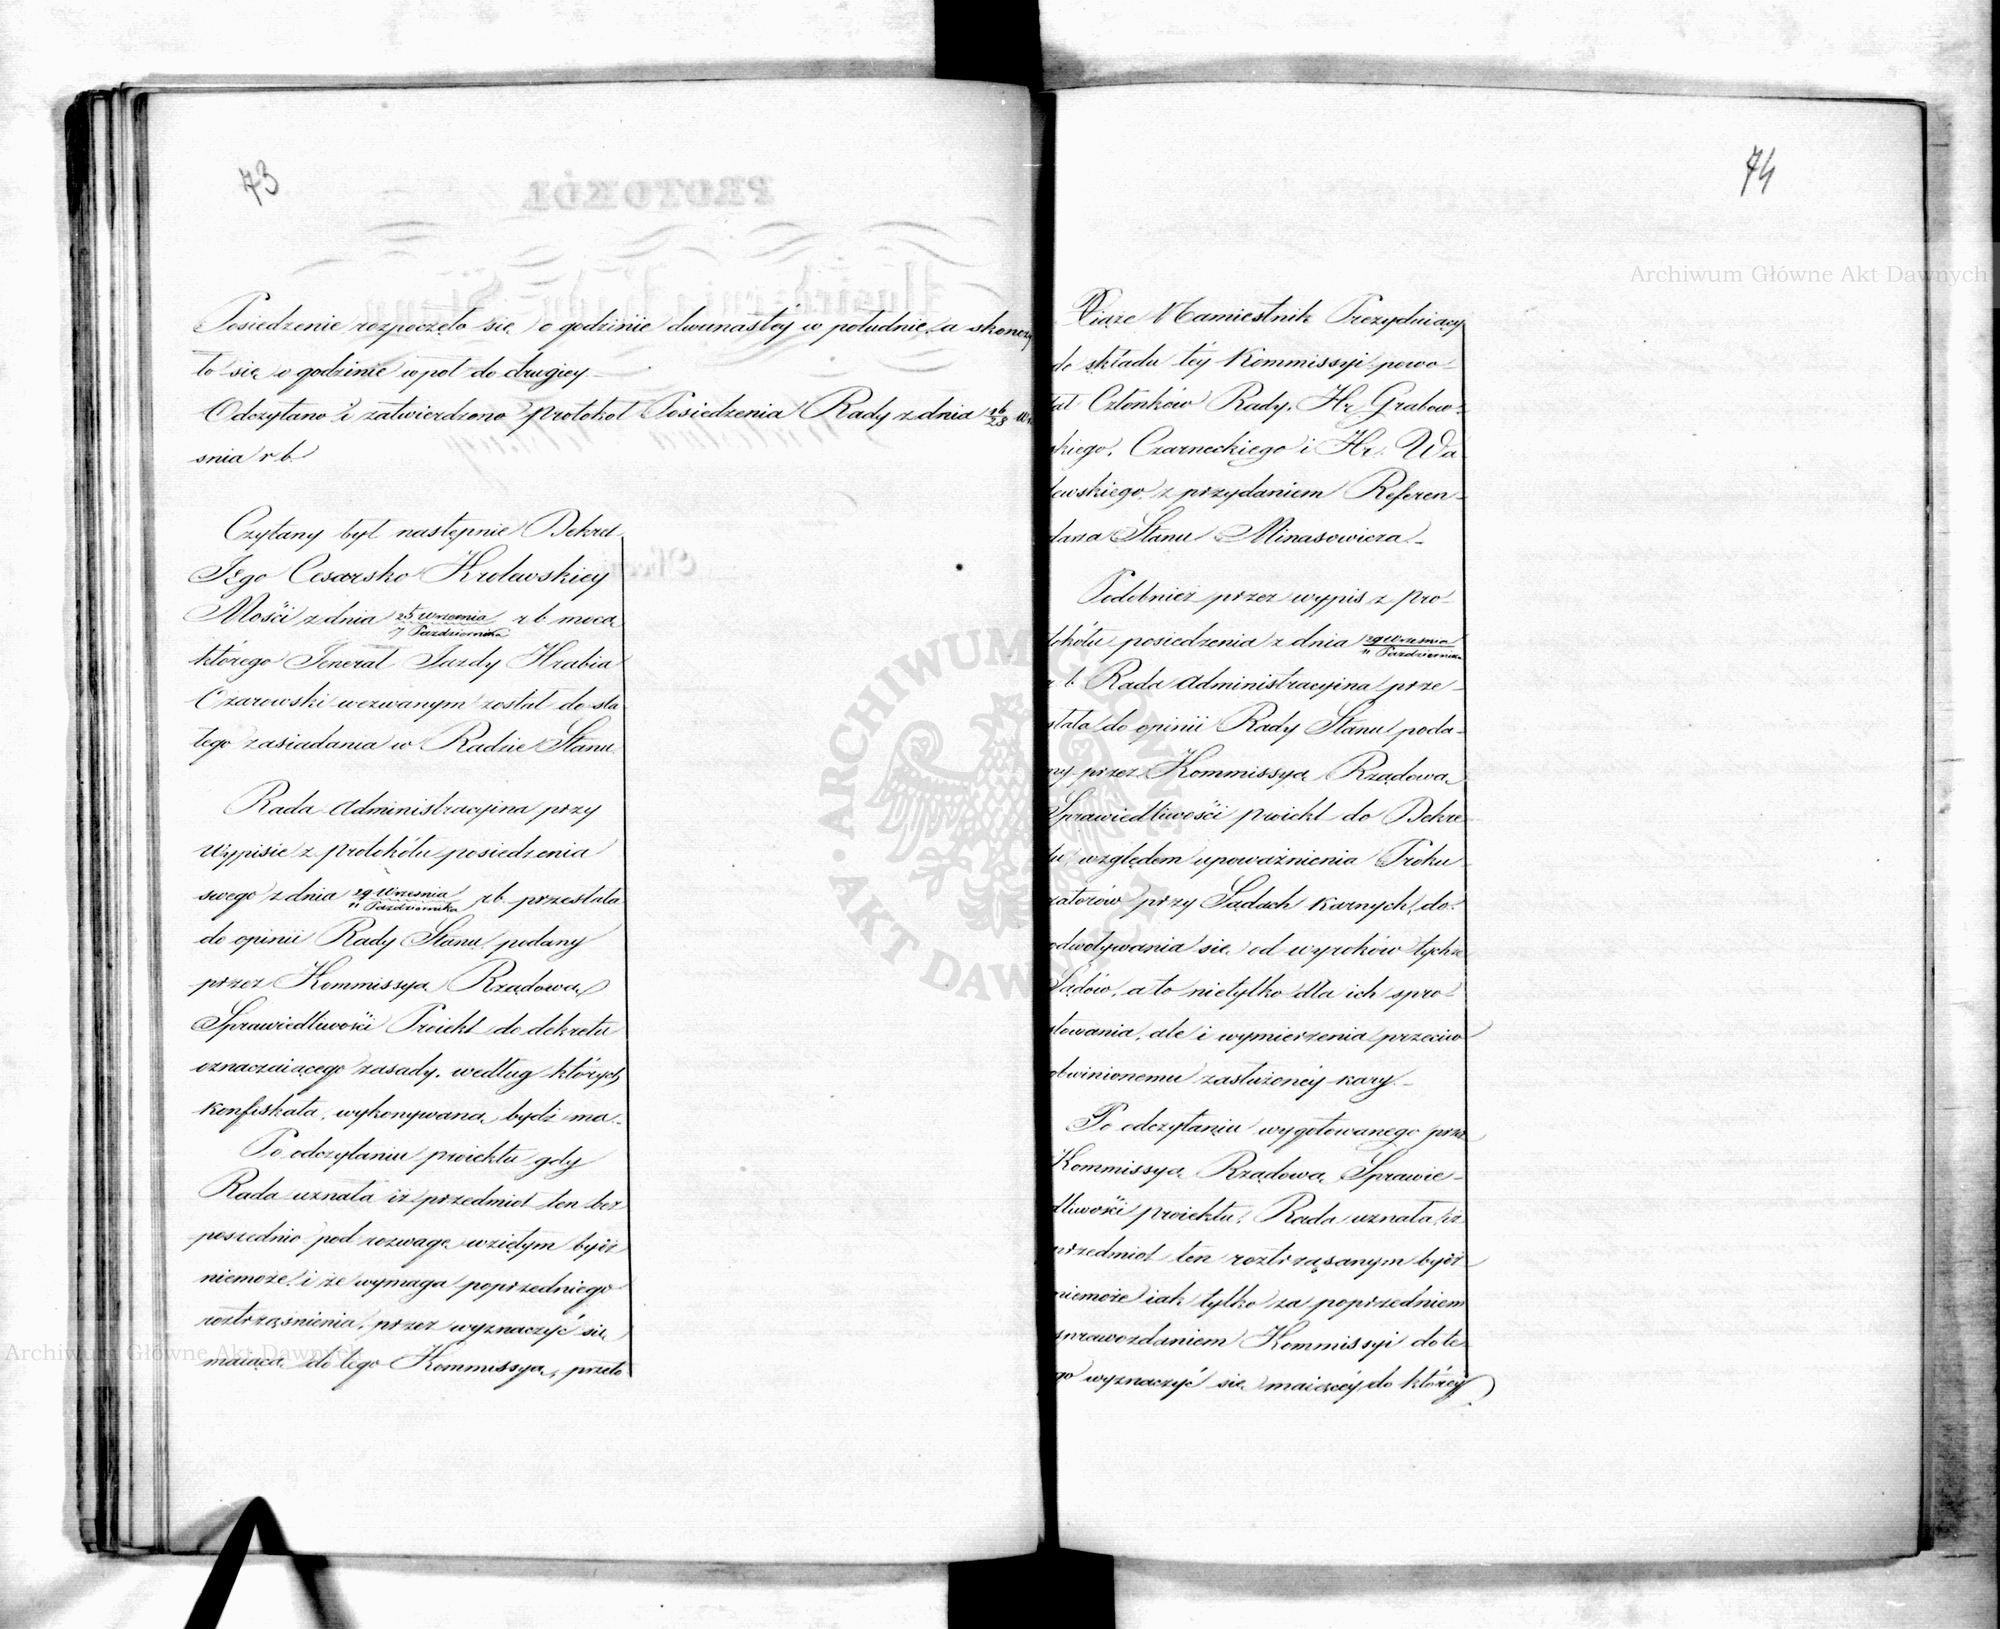 73
Posiedzenie rozpoczęło się o godzinie dwunastéy w południe, a skończy
ło się o godzinie wpół do drugiey.
Odczytano i zatwierdzono Protokoł Posiedzenia Rady z dnia 16/28
snia r b.
Czytany był następnie Dekret
Jego Cesarsko Krolewskiey
Mości z dnia 25 Września / 7 Października r b. mocą
którego Jenerał Jazdy Hrabia
Ożarowski wezwanym został do sta
łego zasiadania w Radzie Stanu
Rada Administracyina przy
wypisie z protokółu posiedzenia
swego z dnia 29 Września / 11 Października r b. przesłała
do opinii Rady Stanu podany
przez Kommissyą Rządową
Sprawiedliwości Proiekt do dekretu
oznaczaiącego zasady, według których
konfiskata, wykonywana bydź ma.
Po odczytaniu proiektu gdy
Rada uznała iż przedmiot ten bez
pośrednio pod rozwagę wziętym bydź
niemoże i że wymaga poprzedniego
roztrząśnienia, przez wyznaczyć się
maiącą do tego Kommissyą, przeto
74
Xiąże Namiestnik Prezyduiący
do składu téy Kommissyi powo-
łał Członków Rady, Hr. Grabow-
skiego, Czarneckiego i Hr. Wa
lewskiego z przydaniem Referen-
darza Stanu Minasowicza.
Podobnież przez wypis z Pro-
tokółu posiedzenia z dnia 29 Września / 11 Października
r b. Rada Administracyina prze-
słała do opinii Rady Stanu poda-
ny przez Kommissyą Rządową
Sprawiedliwości proiekt do Dekre
tu względem upoważnienia Proku
ratorów przy Sądach karnych, do
odwoływania się od wyroków tychże
Sądów, a to nietylko dla ich spro-
stowania, ale i wymierzenia przeciw
obwinionemu zasłużonéy kary.
Po odczytaniu wygotowanego przez
Kommissyą Rządową Sprawie-
dliwości proiektu, Rada uznała iż
przedmiot ten roztrząsanym bydź
niemoże iak tylko za poprzedniem
sprawozdaniem Kommissyi do te
go wyznaczyć się maiącéy, do któréy
Archiwum Główne Akt Dawnych
Archiwum Główne Akt Dawnych
ARCHIWUM GŁÓWNE AKT DAWNYCH